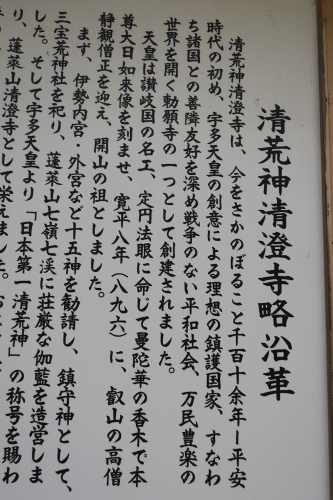 清荒神清澄寺略沿革
清荒神清澄寺は、今をさかのぼること千百十余年ー平安
時代の初め、宇多天皇の創意による理想の鎮護国家、すなわ
ち諸国との善隣友好を深め戦争のない平和社会、万民豊楽の
世界を開く勅願寺の一つとして創建されました。
天皇は讃岐国の名工、定円法眼に命じて曼陀華の香木で本
尊大日如来像を刻ませ、寛平八年（八九六）に、叡山の高僧
静観僧正を迎え、開山の祖としました。
まず、伊勢内宮・外宮など十五神を勧請し、鎮守神として、
三宝荒神社を祀り、蓬莱山七嶺七渓に荘厳な伽藍を造営しま
した。そして宇多天皇より「日本第一清荒神」の称号を賜わ
り、蓬莱山清澄寺として栄えました。